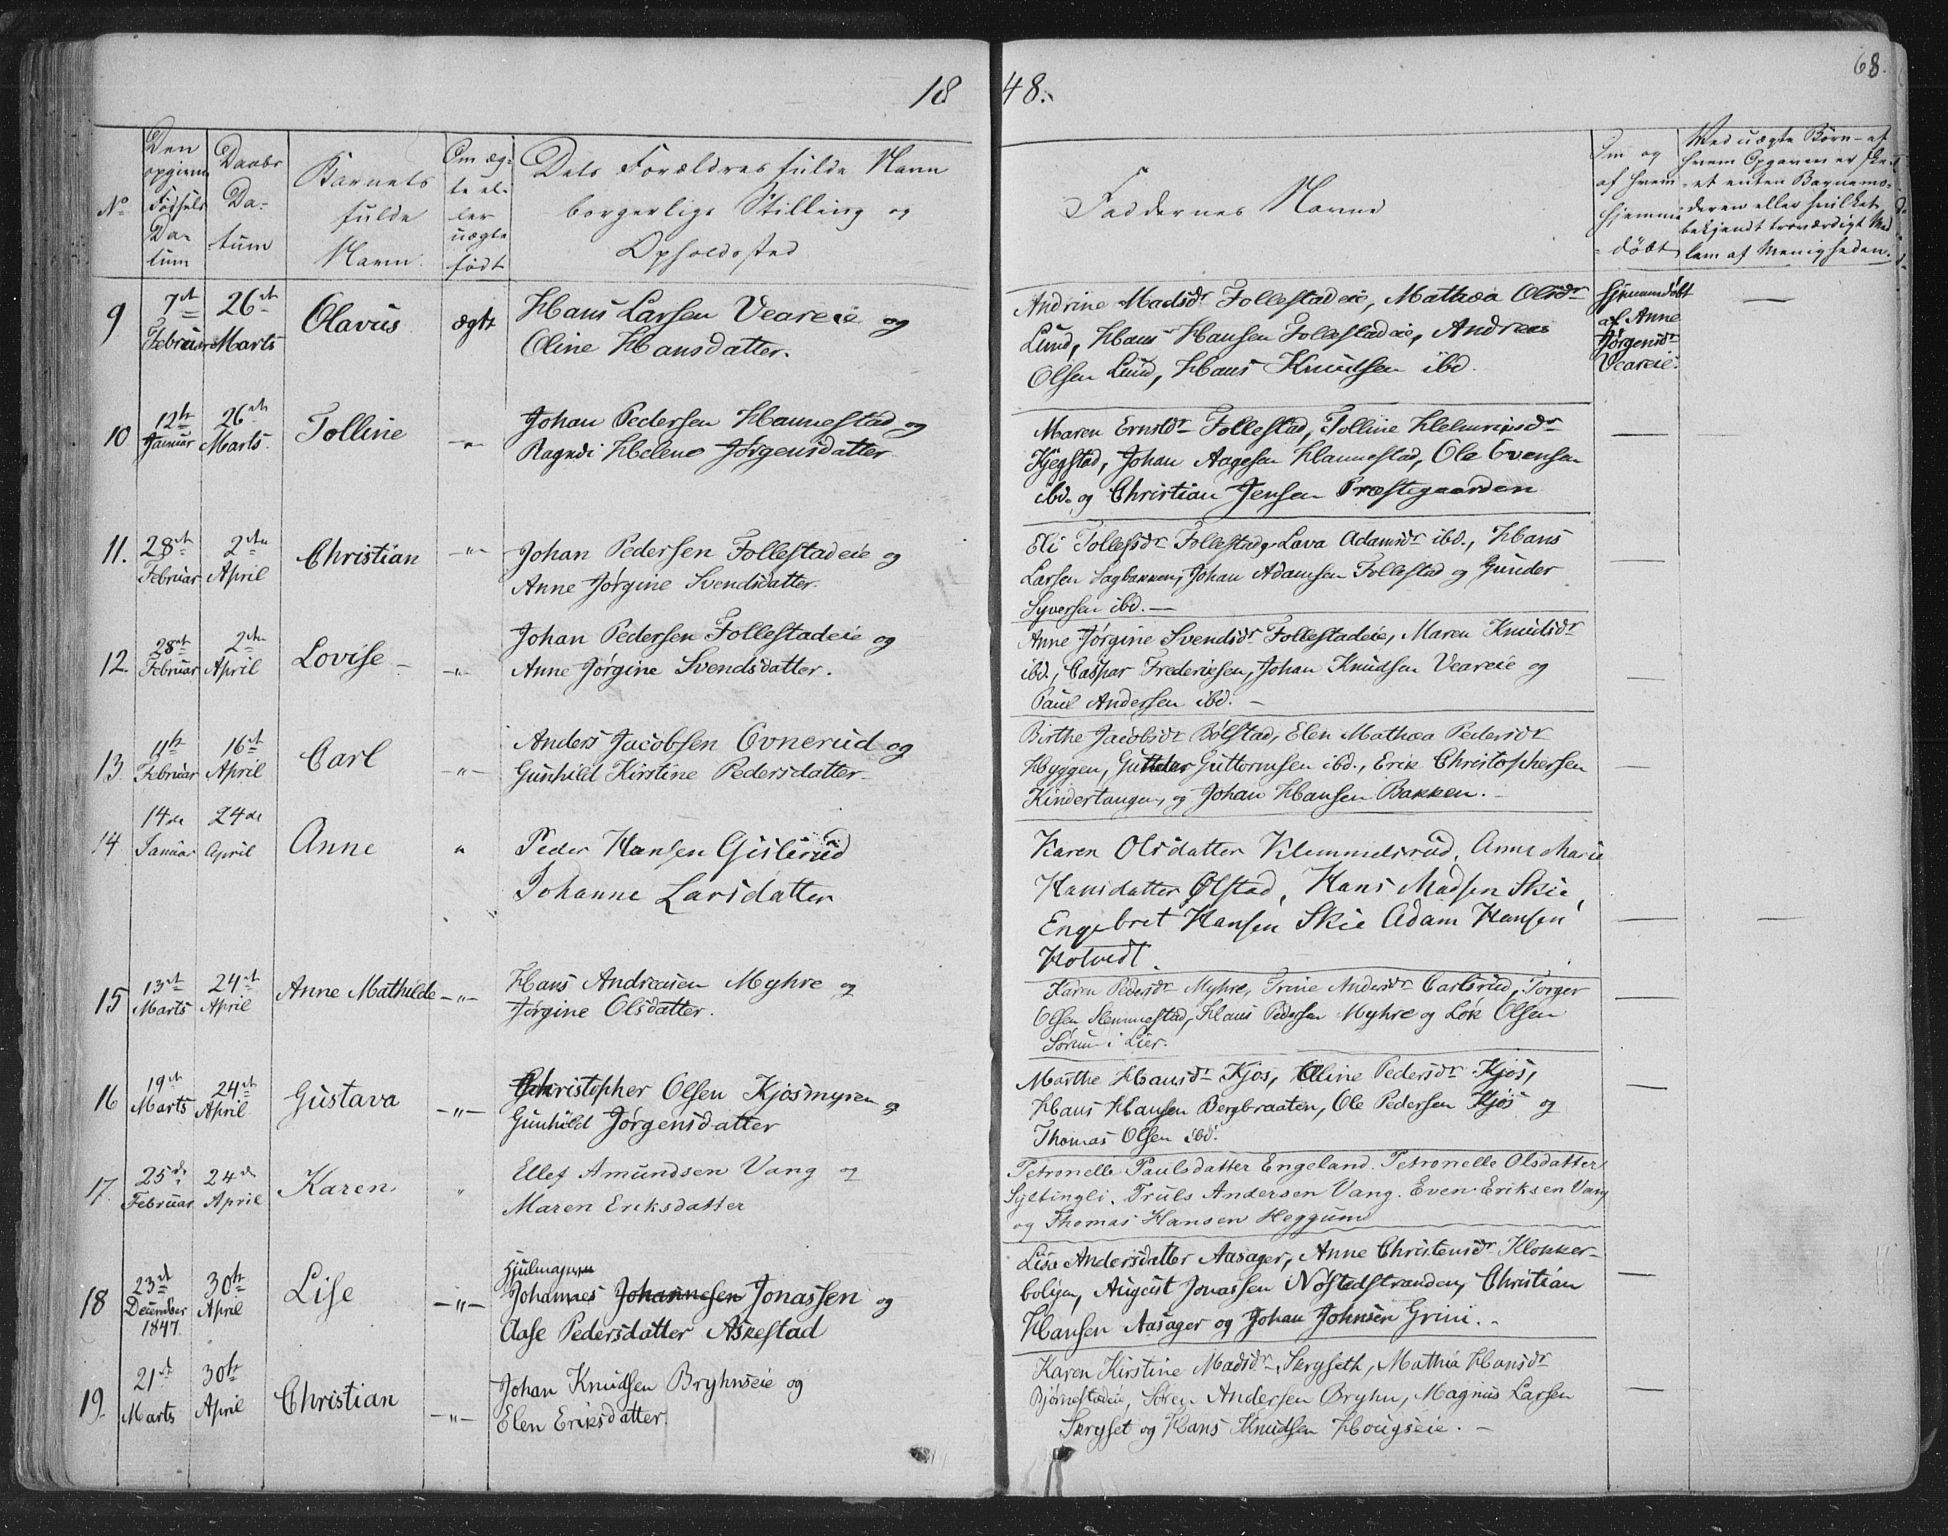 1848.
68.
No
Den opgivne Fødsels Datum
Daabs Datum
Barnets fulde Navn.
Om ægte eller uægte født
Dets Forældres fulde Navn borgerlige Stilling og Opholdssted
Faddernes Navne
Om og af hvem hjemmedøbt
Med uægte Børn af hvem Opgaven er skeet enten Barnemoderen eller hvilket bekjendt troværdigt Medlem af Menigheden.
9 7de Februar 26de Marts Olavus ægte
Hans Larsen Veareie og
Oline Hansdatter.
Andrine Madsdr Follestadeie, Mathea Olsdr
Lund, Hans Hansen Follestadeie, Andreas
Olsen Lund, Hans Knudsen ibd.
Hjemmedøbt
af Anne
Jørgensdr
Veareie.
10 12te Januar 26de Marts. Tolline -"-
Johan Pedersen Hannestad og
Ragndi Helene Jørgensdatter
Maren Ernstdr Follestad, Tolline
Kjegstad, Johan Aagesen Hannestad, Ole Evensen
ibd. og Christian Jensen Præstegaarden
11. 28de Februar 2den April Christian -"-
Johan Pedersen Follestadeie og
Anne Jørgine Svendsdatter.
Eli Tollefsdr Follestad, Lava Adamsdr ibd., Hans
Larsen Sagbakken, Johan Adamsen Follestad og Gunder
Syversen ibd. —
12. 28de Februar 2den April Lovise -"-
Johan Pedersen Follestadeie og
Anne Jørgine Svendsdatter.
Anne Jørgine Svendsdr Follestadeie, Maren Knudsdr
ibd., Caspar Frederiesen, Johan Knudsen Veareie og
Paul Andersen ibd. -
13. 11te Februar 16de April Carl -"-
Anders Jacobsen Ovnerud og
Gunhild Kirstine Pedersdatter
Birthe Jacobsdr Bølstad, Elen Mathea Pedersdr
Hyggen, Guttormsen ibd., Erik Christophersen
Kindertangen, og Johan Hansen Bakken. -
14 14de Januar 24de April Anne "
Peder Hansen Gislerud
Johanne Larsdatter
Karen Olsdatter Klemmelsrud, Anne Marie
Hansdatter Ølstad, Hans Madsen Skie,
Engebret Hansen Skie Adam Hansen
Holvedt.
15 13de Marts 24de April Anne Mathilde -"-
Hans Andreasen Myhre og
Jørgine Olsdatter.
Karen Pedersdr Myhre, Trine Andersdr Carlsrud, Torger
Olsen Slemmestad, Hans Pedersen Myhre og Olsen
Sørum i Lier.
16 19de Marts 24de April Gustava -"-
Christopher Olsen Kjosmyren og
Gunhild Jørgensdatter
Marthe Hansdr Kjos, Oline Pedersdr Kjøs,
Hans Hansen Bergbraaten, Ole Pedersen Kjøs og
Thomas Olsen ibd.
17. 25de Februar 24de April Karen "
Ellef Amundsen Vang og
Maren Eriksdatter
Petronelle Paulsdatter Engeland. Petronelle Olsdatter
Syltingli. Truls Andersen Vang. Even Eriksen Vang
og Thomas Hansen Heggum
18 23de December 1847. 30te April Lise -"-
Hjulmager
Johannes Johannesen Jonassen og
Aase Pedersdatter Askestad
Lise Andersdatter Aasager, Anne Christensdr Klokker-
boligen, August Jonassen Nøstedstranden, Christian
Hansen Aasager og Johan Johnsen Grini. -
19. 21de Marts 30te April Christian -"-
Johan Knudsen Bryhnseie og
Elen Eriksdatter.
Karen Kirstine Madsdr Skryseth, Mathia Hansdr
Bjørnestadeie, Søren Andersen Bryhn, Magnus Larsen
Skryset og Hans Knudsen Hougseie. -